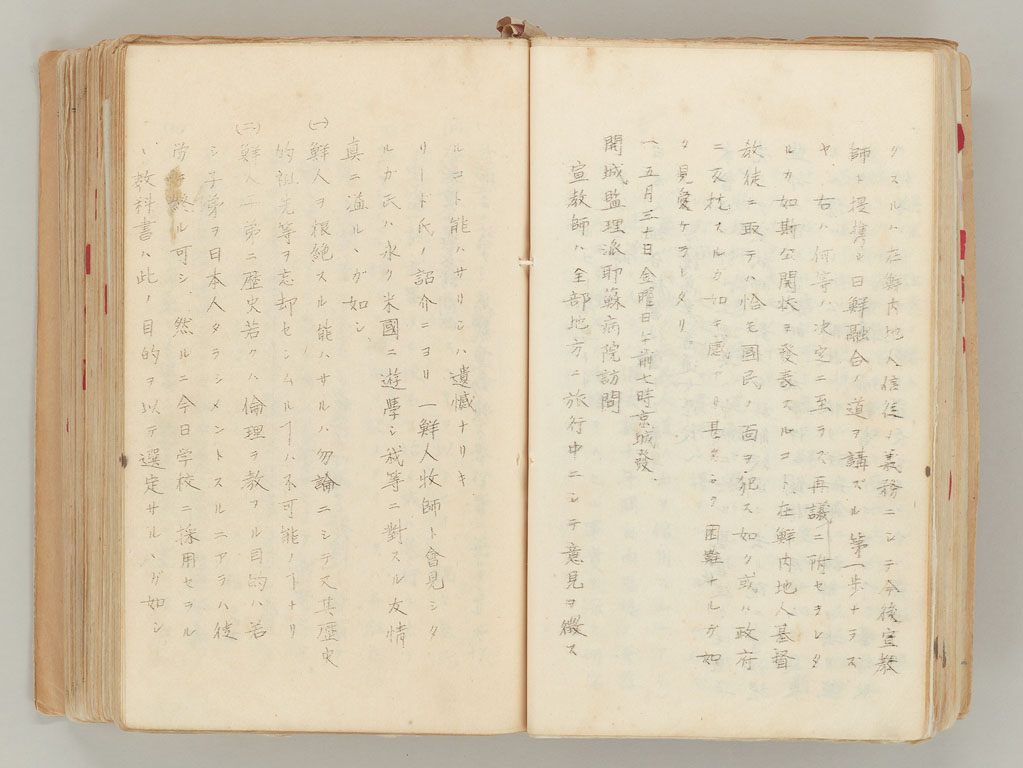 クスルハ在鮮内地人信徒ノ義務ニシテ今後宣教
師ト提携シ日鮮融合ノ道ヲ講ズル第一歩ナラズ
ヤ、右ハ何等ノ決定ニ至ラス再議ニ附セラレタ
ルカ如斯公開状ヲ發表スルコト、在鮮内地人基督
教徒ニ取テハ恰モ國民ノ面ヲ犯ス如ク或ハ政府
ニ反抗スルカ如キ感ナリ甚タシク困難ナルガ如
ク見受ケラレタリ
一、五月三十日金曜日午前七時京城發、
開城監理派耶蘇病院訪問
宣教師ハ全部地方ニ旅行中ニシテ意見ヲ徴ス
ルコト能ハサリシハ遺憾ナリキ
リート氏ノ紹介ニヨリ一鮮人牧師ト會見シタ
ルガ氏ハ永ク米國ニ遊學シ我等ニ對スル友情
真ニ溢ルヽガ如シ、
(一)鮮人ヲ根絶スル能ハサルハ勿論ニシテ又其歴史
的祖先等ヲ忘却セシムルヿハ不可能ノヿナリ
(二)鮮人子弟ニ歴史若クハ倫理ヲ教フル目的ハ若
シ子弟ヲ日本人タラシメントスルニアラハ徒
労ニ終ル可シ、然ルニ今日学校ニ採用セラル
ヽ教科書ハ此ノ目的ヲ以テ選定サルヽガ如シ